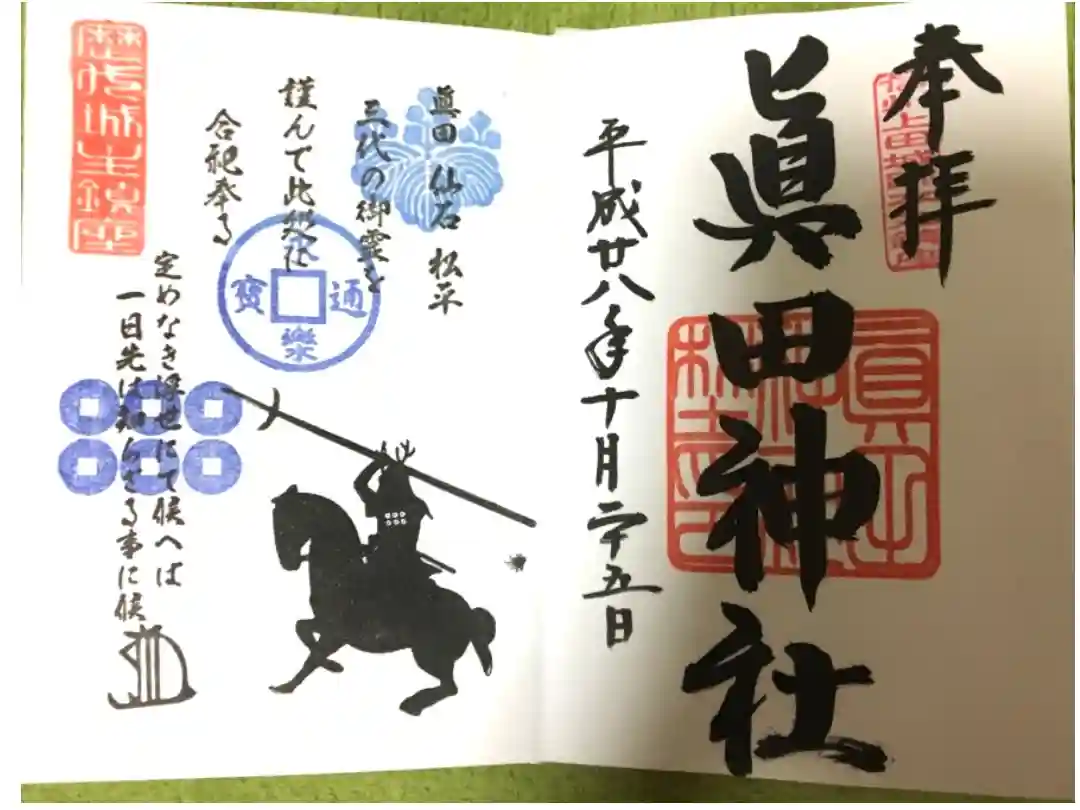 奉拝
眞田神社
平成廿八年十月二十五日
眞田 仙石 松平
三代の御霊を
謹んで此処に
合祀奉る
通
寳
樂
定めなき浮世にて候へば
一日先は知れざる事に候
歴代城主鎮座